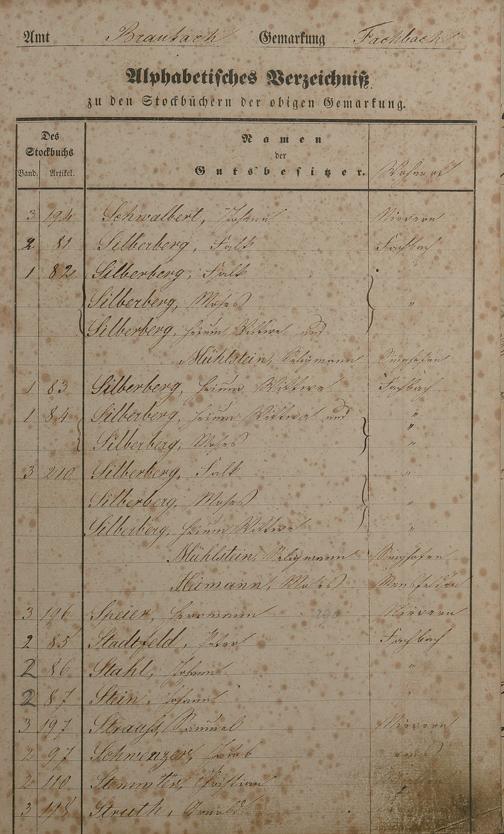 Amt Braubach Gemarkung Fachbach
Alphabetisches Verzeichniß
zu den Stockbüchern der obigen Gemarkung.
Des Stockbuchs
Band. Artikel.
Namen
der
Gutsbesitzer.
Wohnort
3 194 Schwalbert, Johann Nievern
2 81 Silberberg, Falk Fachbach
1 82 Silberberg, Falk
Silberberg, Moses "
Silberberg, Wittwe und
Mühlstein, Seligmann
1 83 Silberberg, Wittwe Fachbach
1 84 Silberberg, Wittwe und "
Silberberg, Moses "
3 210 Silberberg, Falk "
Silberberg, Moses
Silberberg, Wittwe "
Mühlstein, Seligmann
Heimann, Moses
3 196 Speier, Herrmann Nievern
2 85 Stadtfeld, Peter Fachbach
2 86 Stahl, Johann "
2 87 Stein, Johann "
3 197 Strauß, Samuel Nievern
2 97 Schwenzer, Jacob
2 110
3 Struth,